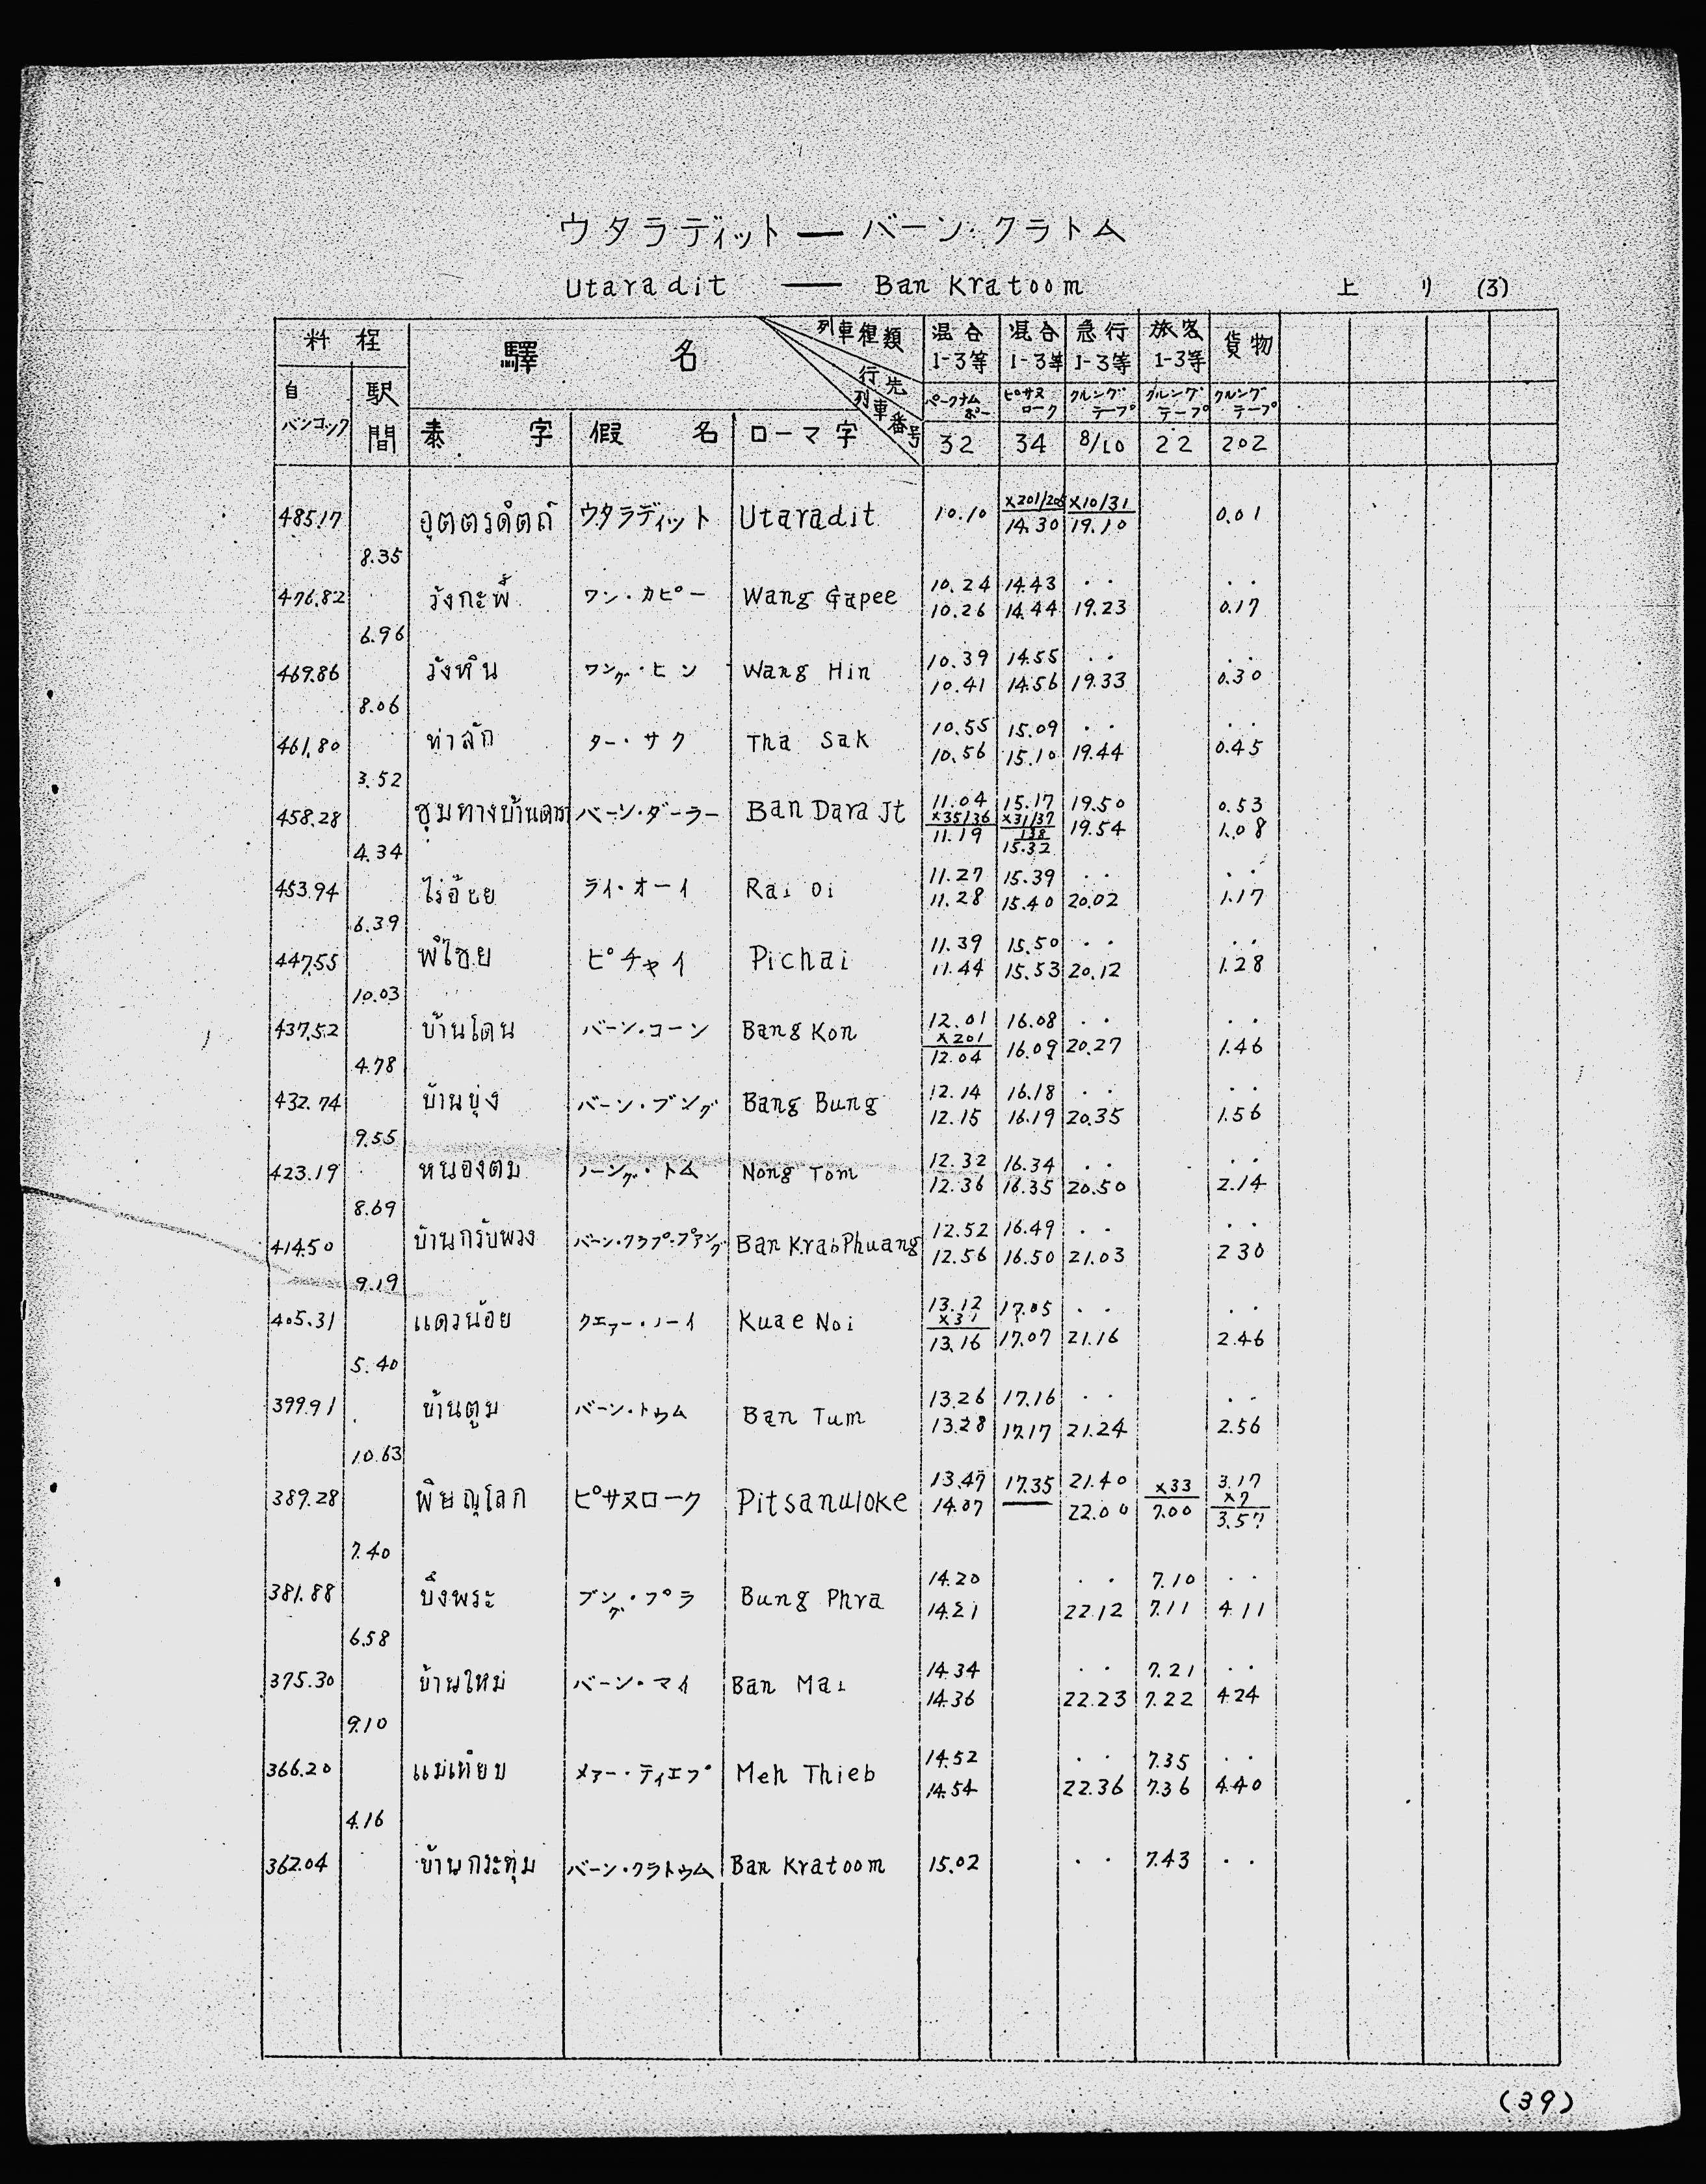 ウタラディット — バーン・クラトム
Utaradit — Ban Kratoom 上 リ (3)
料 程 驛 名 列車種類 混合 混合 急行 旅客 貨物
1-3等 1-3等 1-3等 1-3等
自 駅 行先 パークナム ピサヌ クルング クルング クルング
バンコック 間 ポー ローク テープ テープ テープ
泰 字 假 名 ローマ字 列車番号 32 34 8/10 22 202
×201/205 ×10/31
485.17 อุตตรดิตถ์ ウタラディット Utaradit 10.10 14.30 19.10 0.01
8.35
10.24 14.43 . . . .
476.82 วังกะพี้ ワン・カピー Wang Gapee 10.26 14.44 19.23 0.17
6.96
10.39 14.55 . . . .
469.86 วังหิน ワング・ヒン Wang Hin 10.41 14.56 19.33 0.30
8.06
10.55 15.09 . . . .
461.80 ท่าสัก ター・サク Tha Sak 10.56 15.10 19.44 0.45
3.52
11.04 15.17 19.50 0.53
458.28 ชุมทางบ้านดารา バーン・ダーラー Ban Dara Jt ×35/36 ×31/37 19.54 1.08
11.19 138
15.32
4.34
11.27 15.39 . . . .
453.94 ไร่อ้อย ライ・オーイ Rai Oi 11.28 15.40 20.02 1.17
6.39
11.39 15.50 . . . .
447.55 พิไชย ピチャイ Pichai 11.44 15.53 20.12 1.28
10.03
12.01 16.08 . . . .
437.52 บ้านโคน バーン・コーン Bang Kon ×201 16.09 20.27 1.46
12.04
4.78
12.14 16.18 . . . .
432.74 บ้านบุ่ง バーン・ブング Bang Bung 12.15 16.19 20.35 1.56
9.55
12.32 16.34 . . . .
423.19 หนองตม ノーング・トム Nong Tom 12.36 16.35 20.50 2.14
8.69
12.52 16.49 . . . .
414.50 บ้านกรับพวง バーン・クラプ・プアング Ban Krab Phuang 12.56 16.50 21.03 2 30
9.19
13.12 17.05 . . . .
405.31 แควน้อย クエアー・ノーイ Kuae Noi ×31
13.16 17.07 21.16 2.46
5.40
13.26 17.16 . . . .
399.91 บ้านตูม バーン・トゥム Ban Tum 13.28 17.17 21.24 2.56
10.63
13.47 17.35 21.40 ×33 3.17
389.28 พิษณุโลก ピサヌローク Pitsanuloke 14.07 — 22.00 7.00 ×7
3.57
7.40
14.20 . . 7.10 . .
381.88 บึงพระ ブング・プラ Bung Phra 14.21 22.12 7.11 4.11
6.58
14.34 . . 7.21 . .
375.30 บ้านใหม่ バーン・マイ Ban Mai 14.36 22.23 7.22 4.24
9.10
14.52 . . 7.35 . .
366.20 แม่เทียบ メァー・ティエプ Meh Thieb 14.54 22.36 7.36 4.40
4.16
362.04 บ้านกระทุ่ม バーン・クラトゥム Ban Kratoom 15.02 . . 7.43 . .
(39)